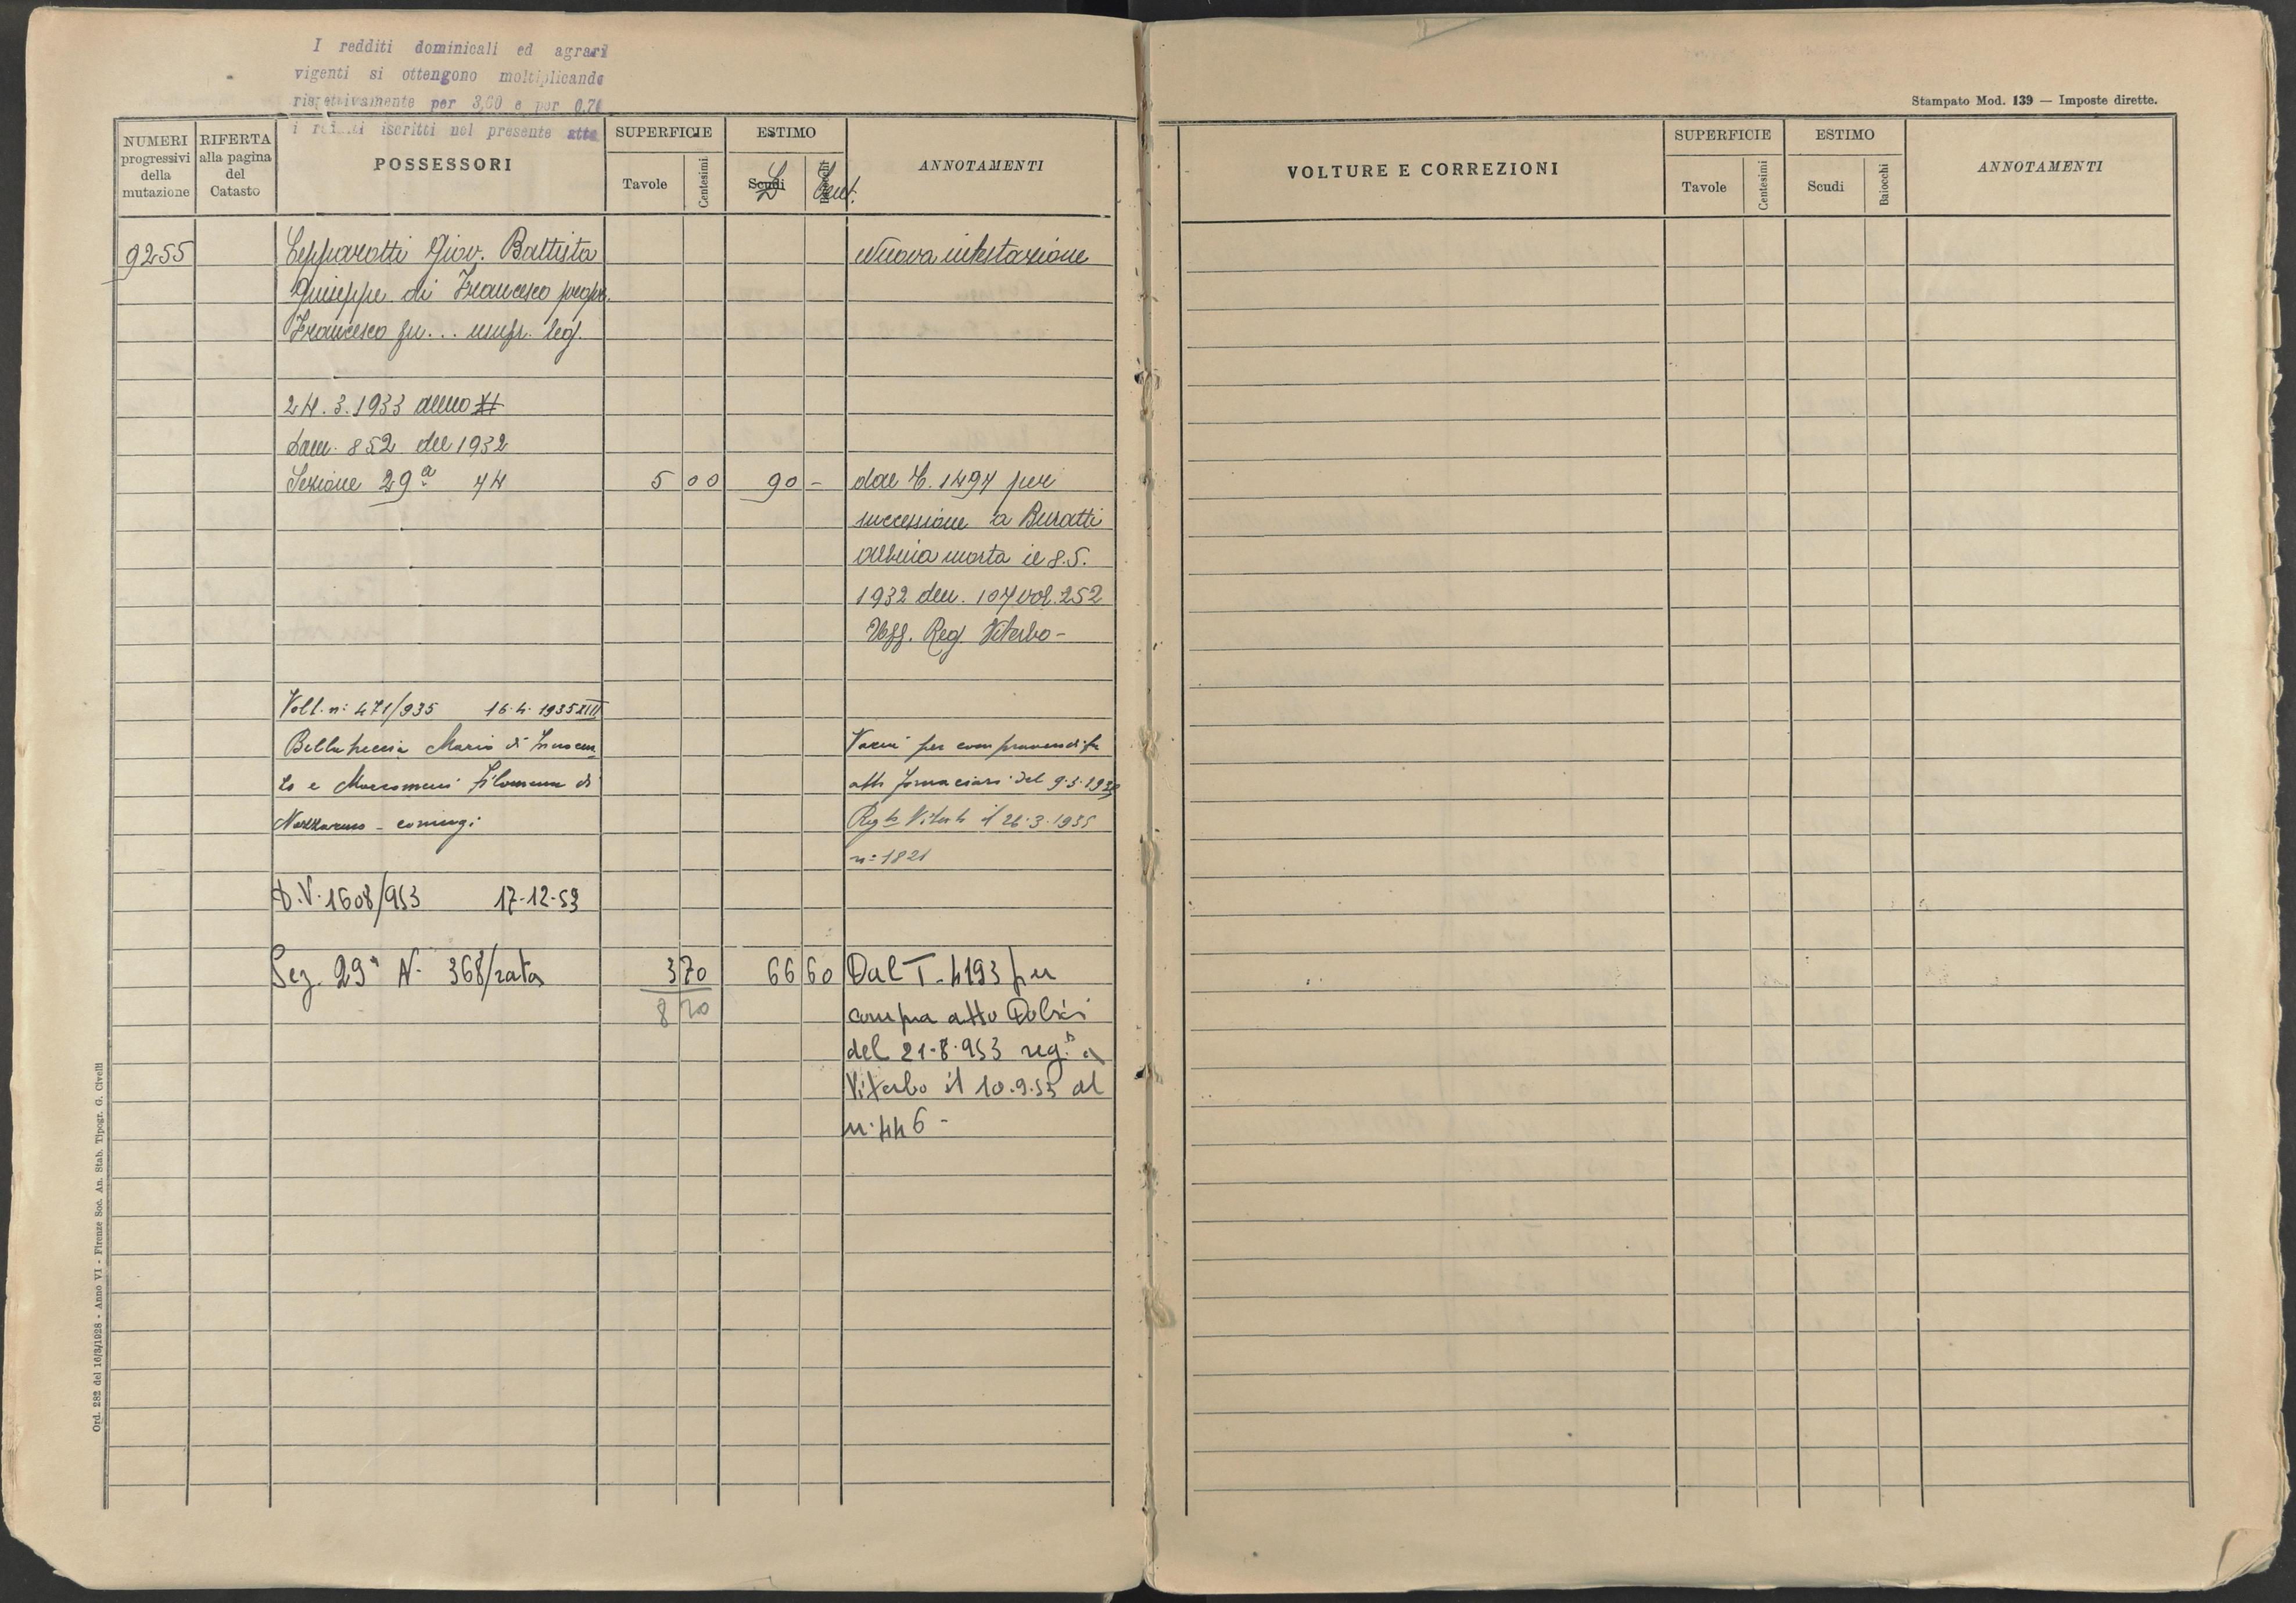 I redditi dominicali ed agrari
vigenti si ottengono moltiplicando
rispettivamente per 3,60 e per
i iscritti nel presente atto
Stampato Mod. 139 — Imposte dirette.
NUMERI progressivi della mutazione
RIFERTA alla pagina del Catasto
POSSESSORI
SUPERFICIE
Tavole Centesimi
ESTIMO
Scudi Baiocchi
L Cent.
ANNOTAMENTI
9255 Cepparotti Giov. Battista Nuova intestazione
Giuseppe di Francesco propr.
Francesco fu ... usufr. leg.
24.3.1933 anno XI
Dom. 852 del 1932
Sezione 29ª 74 5 00 90 - dal T. 1494 per
successione a Buratti
morta il 8.5.
1932 den. 107 vol. 252
Uff. Reg. Viterbo -
Volt. n: 471/935 16.4.1935 XIII
Mario di per
e Filomena di atto Fornaciari del
Nazzareno - coniugi Viterbo il 26.3.1935
n: 1821
D.V. 1608/953 17-12-53
Sez. 29ª N. 368/rata 3 70 66 60 Dal T. 4193 per
8 70 compra atto
del 21-8-953 reg.to a
Viterbo il 10.9.53 al
n. 446 -
Ord. 282 del 16/3/1928 - Anno VI - Firenze Soc. An. Stab. Tipogr. G. Civelli
VOLTURE E CORREZIONI
SUPERFICIE
Tavole Centesimi
ESTIMO
Scudi Baiocchi
ANNOTAMENTI